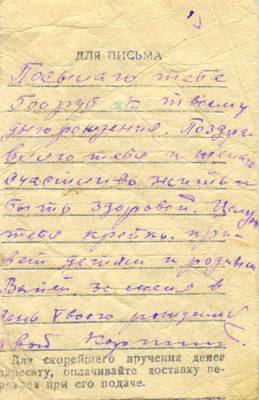 ДЛЯ ПИСЬМА
Посылаю тебе
500 руб к твоему
дню рождения. Поздра
вляю тебя и желаю
счастливо жить и
быть здоровой. Целую
тебя крепко. при
вет детям и родным
Выпей за меня в
день твоего рождения
твой
Для скорейшего вручения денег
адресату, оплачивайте доставку пе-
ревода при его подаче.